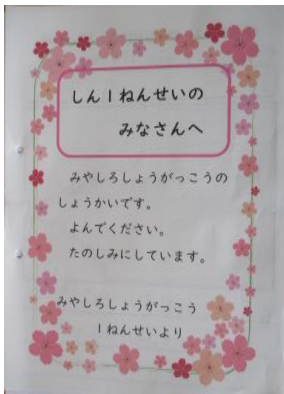 しん１ねんせいの
みなさんへ
みやしろしょうがっこうの
しょうかいです。
よんでください。
たのしみにしています。
みやしろしょうがっこう
１ねんせいより